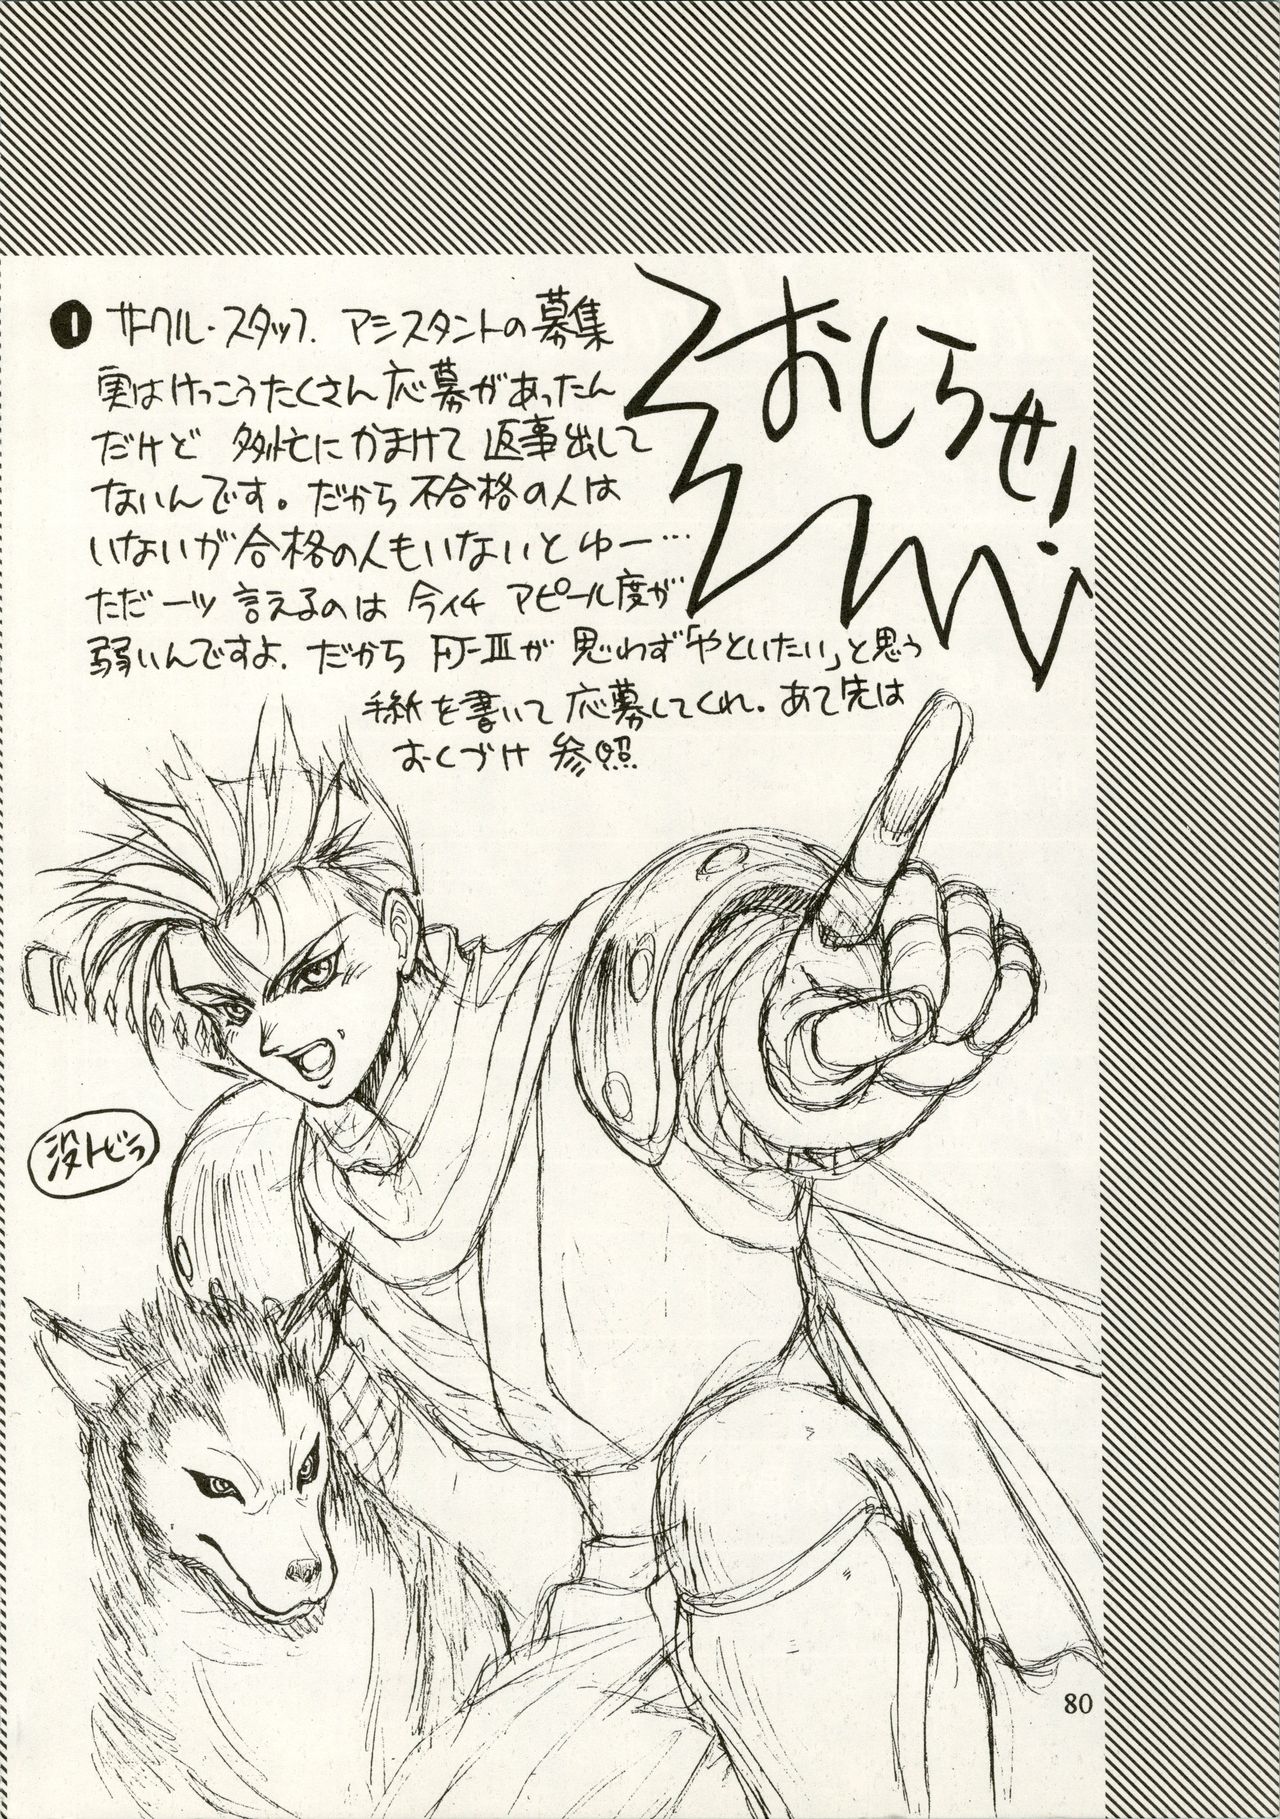 おしらせ!
❶ サークル・スタッフ. アシスタントの募集
実はけっこうたくさん応募があったん
だけど 多忙にかまけて 返事出して
ないんです。だから不合格の人は
いないが合格の人もいないとゆー…
ただ一ツ 言えるのは 今イチ アピール度が
弱いんですよ. だから FJ-Ⅲが 思わず「やといたい」と思う
手紙を書いて 応募してくれ。あて先は
おくづけ 参照
没トビラ
80